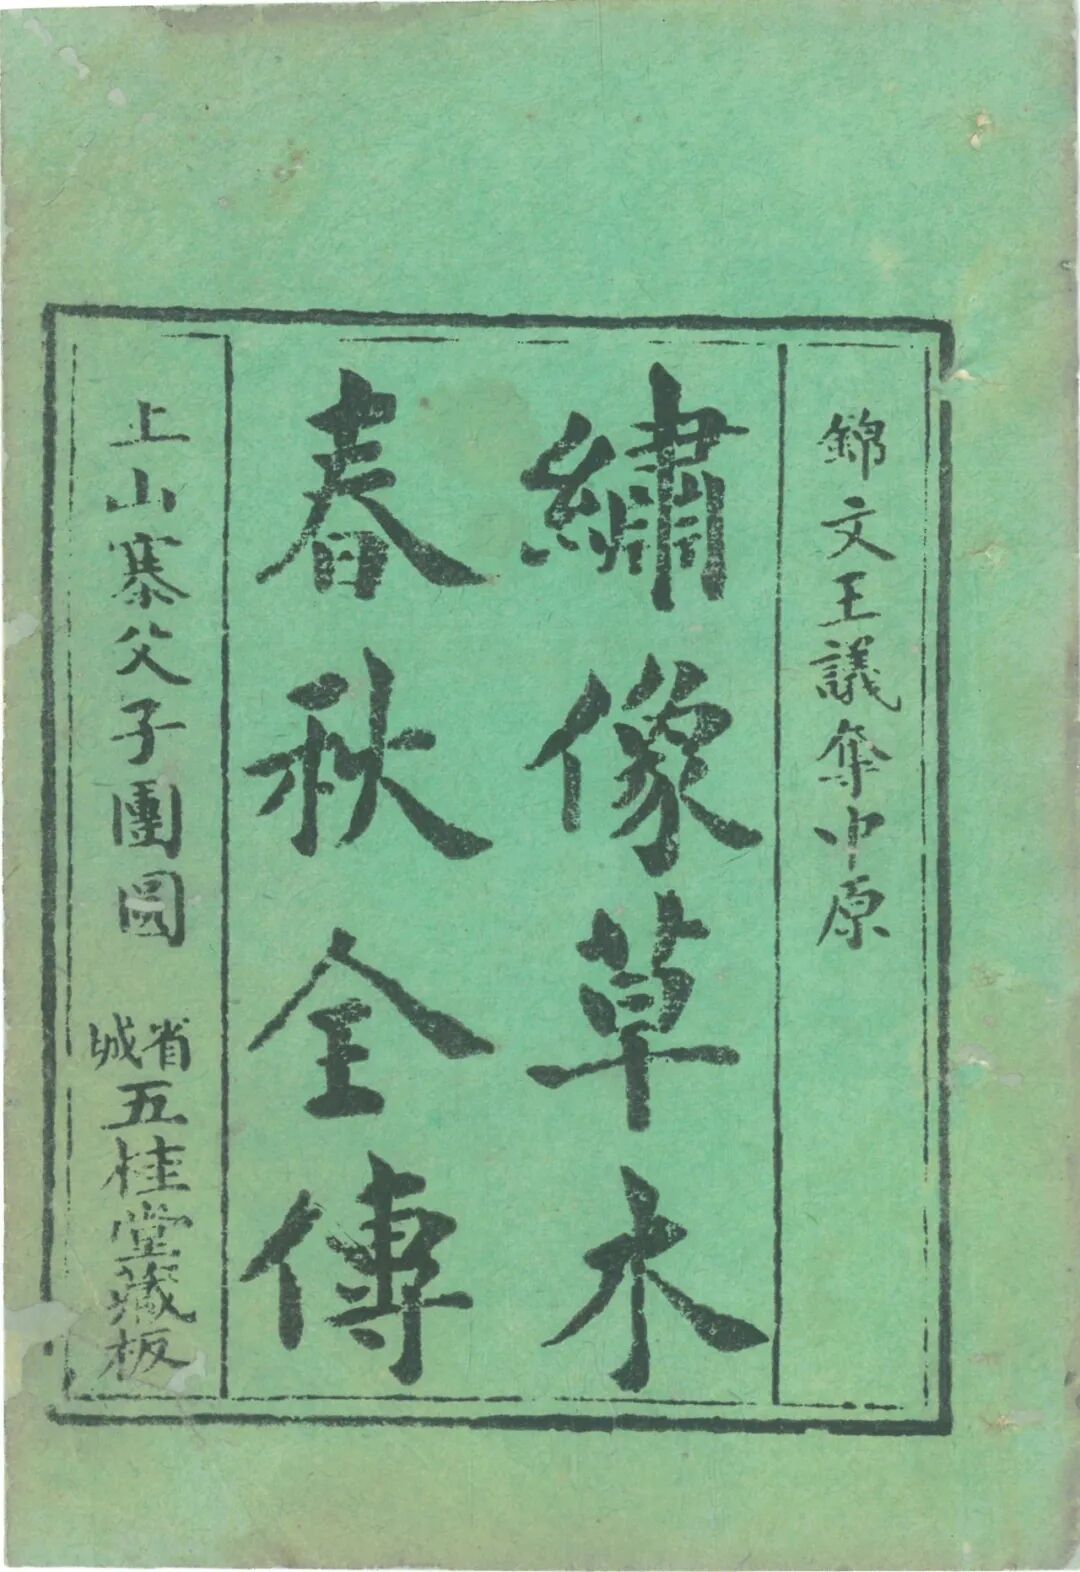 錦文王議奪中原
繡像草木
春秋全傳
上山寨父子團圓
省城
五桂堂藏板